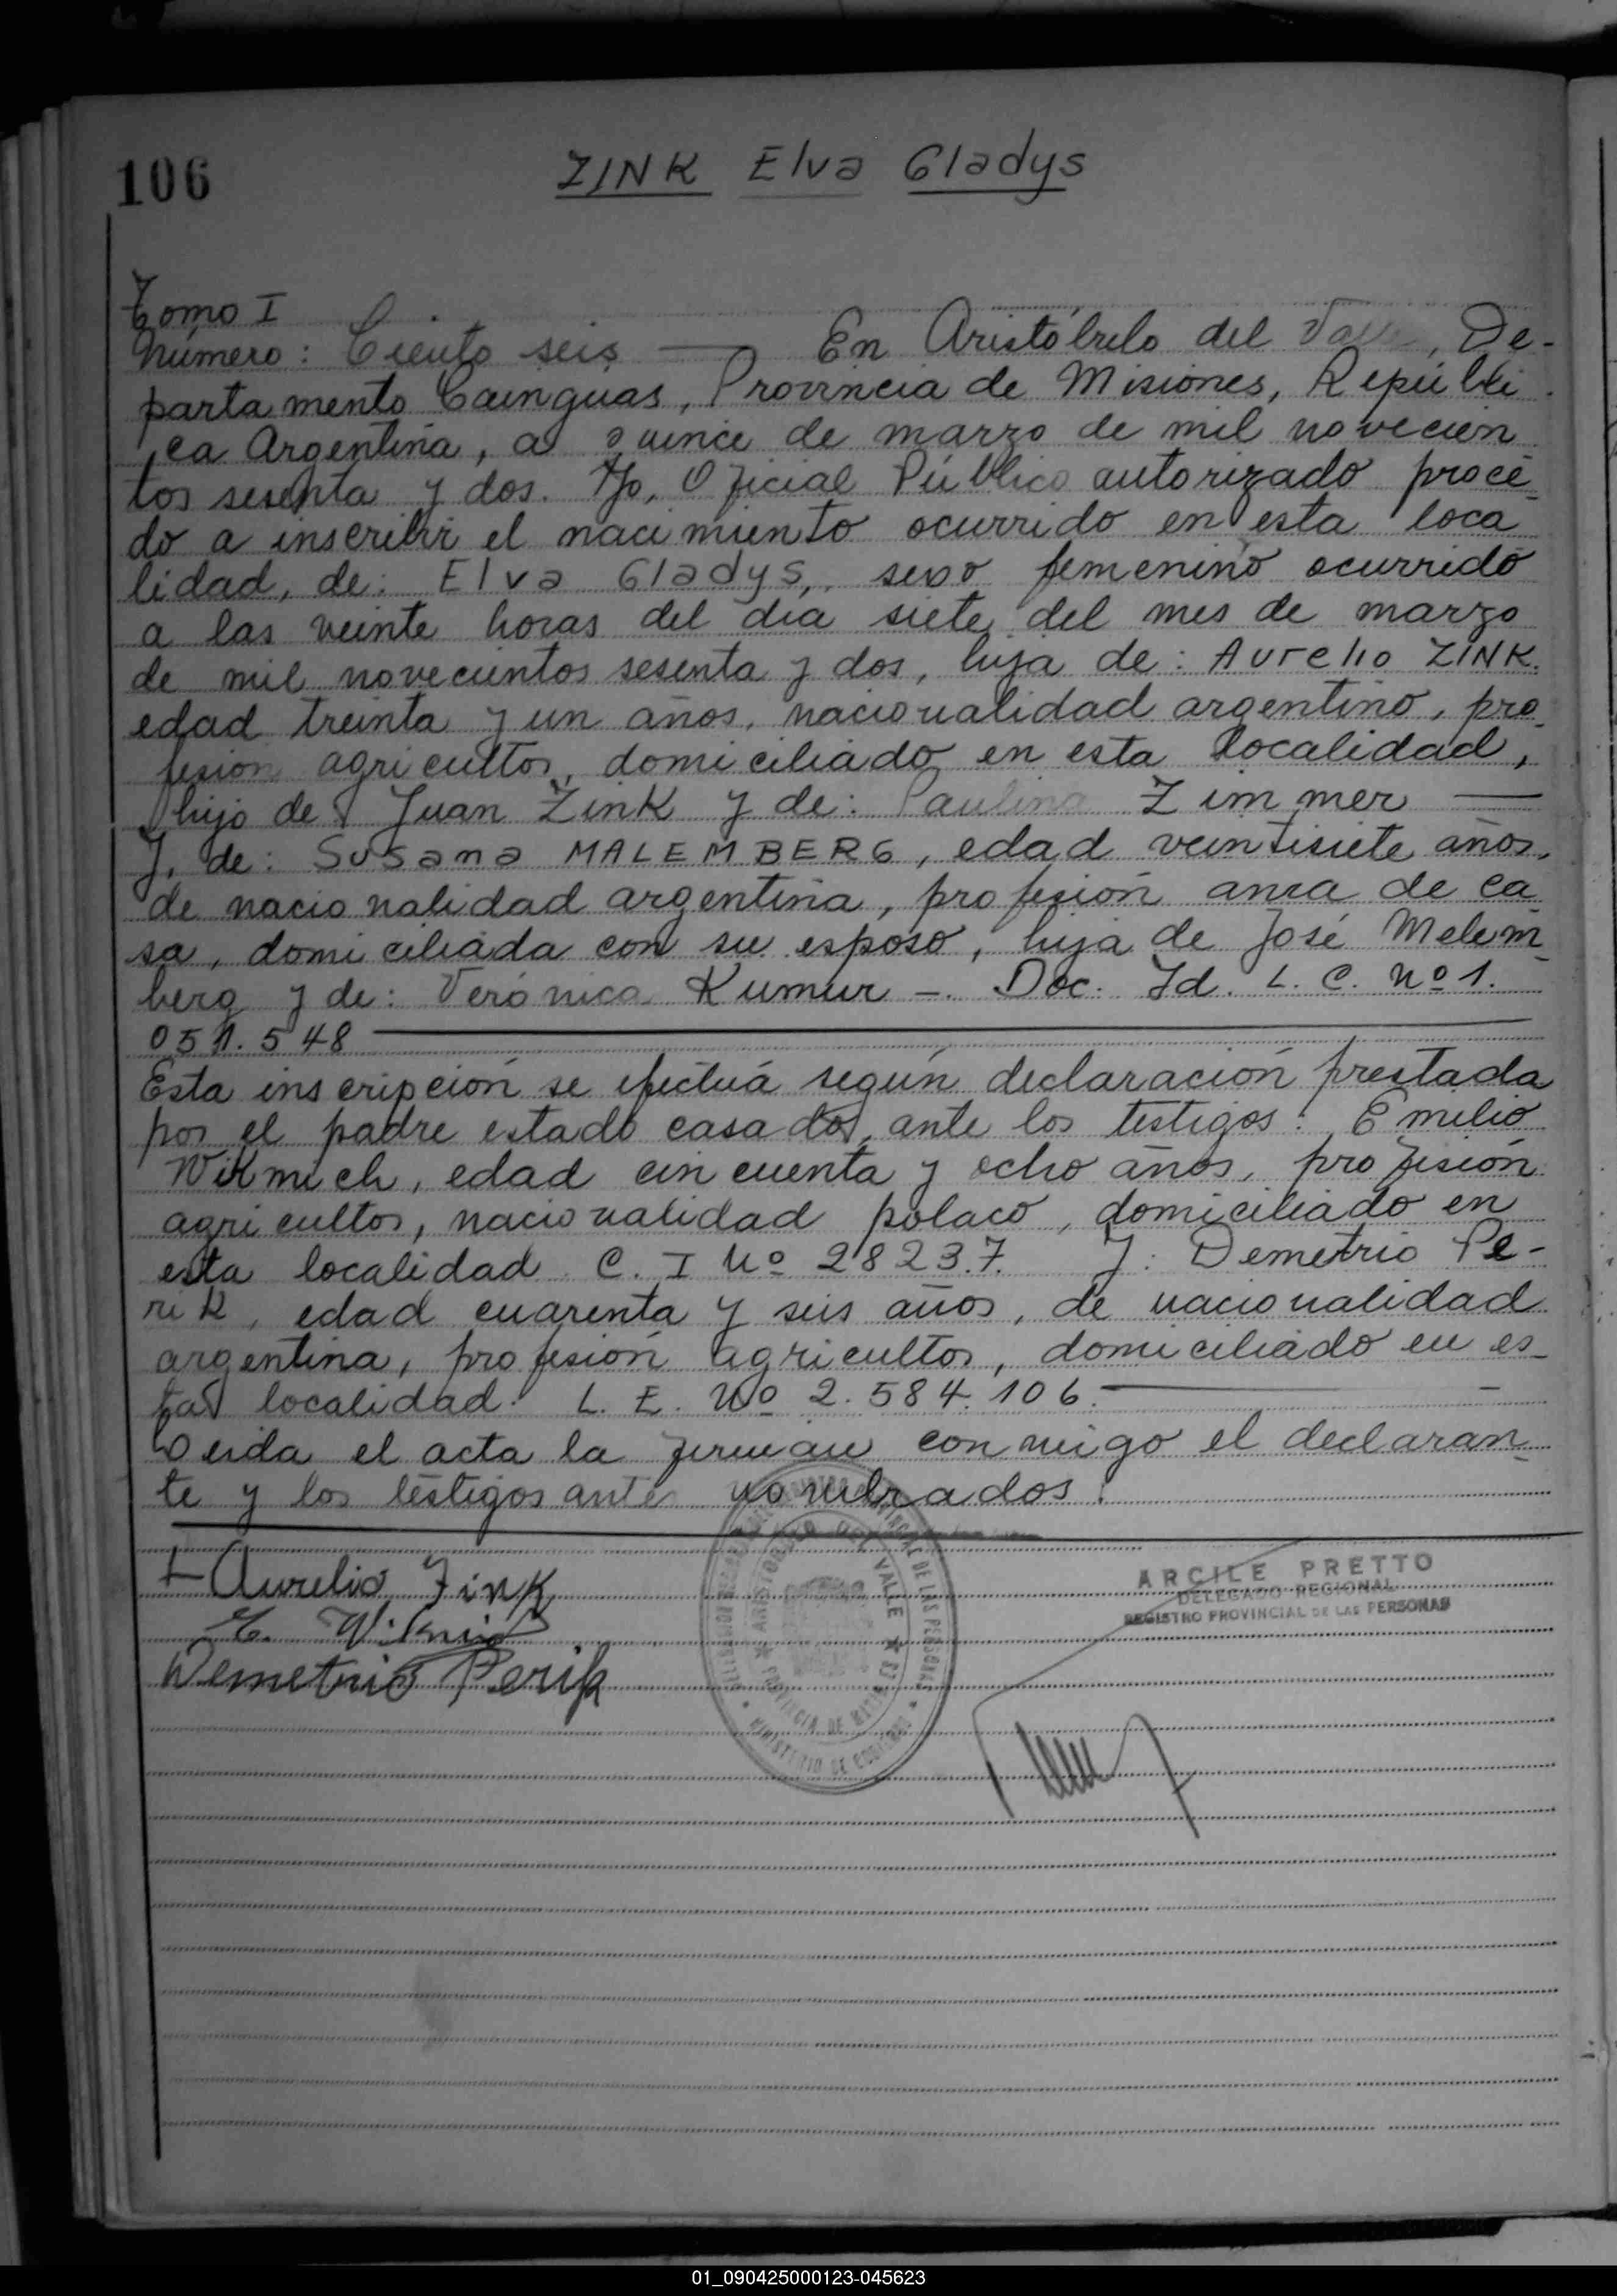 106
ZINK Elva Gladys
Tomo I
Número: Ciento seis — En Aristóbulo del Valle, De-
partamento Cainguas, Provincia de Misiones, Repúbli
ca Argentina, a quince de marzo de mil novecien
tos sesenta y dos. Yo, Oficial Público autorizado proce
do a inscribir el nacimiento ocurrido en esta loca
lidad, de: Elva Gladys, sexo femenino ocurrido
a las veinte horas del dia siete del mes de marzo
de mil novecientos sesenta y dos, hija de: Aurelio ZINK.
edad treinta y un años, nacionalidad argentino, pro
fesion agricultor, domiciliado en esta localidad,
hijo de Juan Zink y de: Paulina Zimmer —
y, de: Susana MALEMBERG, edad veintisiete años,
de nacionalidad argentina, profesión ama de ca
sa, domiciliada con su esposo, hija de José Melem
berg y de: Verónica Kumur -. Doc. Id. L. C. Nº 1.
051.548 —
Esta inscripción se efectuá según declaración prestada
por el padre estado casado, ante los testigos: Emilio
Wikmich, edad cincuenta y ocho años, profesión
agricultor, nacionalidad polaco, domiciliado en
esta localidad C. I Nº 28237. Y: Demetrio Pe-
rik, edad cuarenta y seis años, de nacionalidad
argentina, profesión agricultor, domiciliado en es-
ta localidad. L. E. Nº 2.584.106. — -
Leida el acta la firman conmigo el declaran
te y los testigos ante nombrados.
Aurelio Zink
E.
Demetrio Perik
ARISTOBULO DEL VALLE
PROVINCIA DE
MINISTERIO DE GOBIERNO
ARCILE PRETTO
DELEGADO REGIONAL
REGISTRO PROVINCIAL DE LAS PERSONAS
01_090425000123-045623